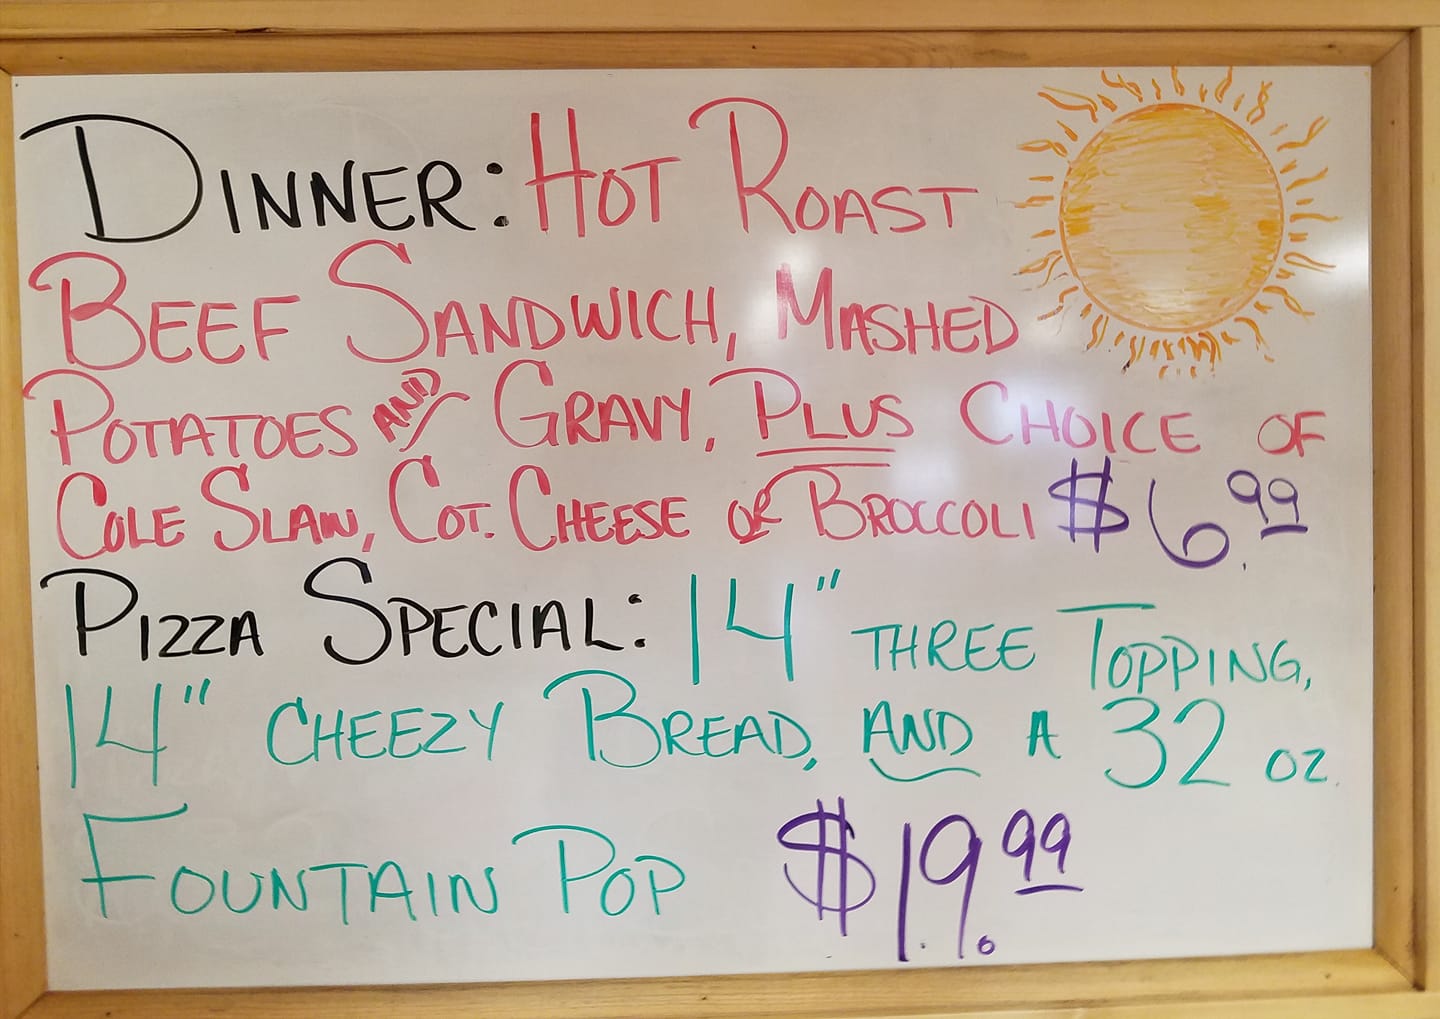 DINNER: HOT ROAST
BEEF SANDWICH, MASHED
POTATOES AND GRAVY, PLUS CHOICE OF
COLE SLAW, COT. CHEESE OR BROCCOLI $6.99
PIZZA SPECIAL: 14" THREE TOPPING,
14" CHEEZY BREAD, AND A 32 OZ.
FOUNTAIN POP $19.99